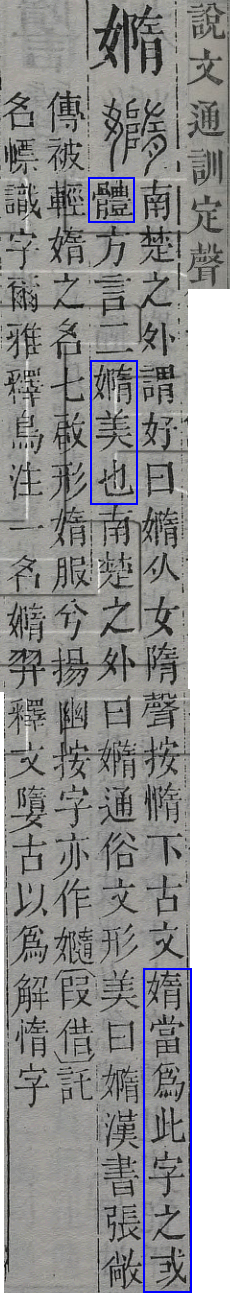 說文通訓定聲
嫷
南楚之外謂好曰嫷从女隋聲按惰下古文媠當爲此字之或
體方言二嫷美也南楚之外曰嫷通俗文形美曰嫷漢書張敞
傳被輕媠之名七啟形媠服兮揚幽按字亦作〔叚借〕託
名幖識字爾雅釋鳥注一名嫷羿釋文古以爲解惰字